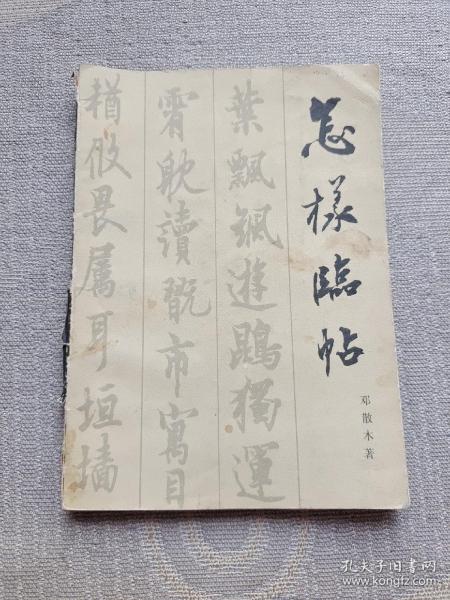 怎樣臨帖
邓散木著
葉飄颻遊鵾獨運
霄耽讀翫市寓目
輶攸畏屬耳垣墻
孔夫子旧书网
www.kongfz.com